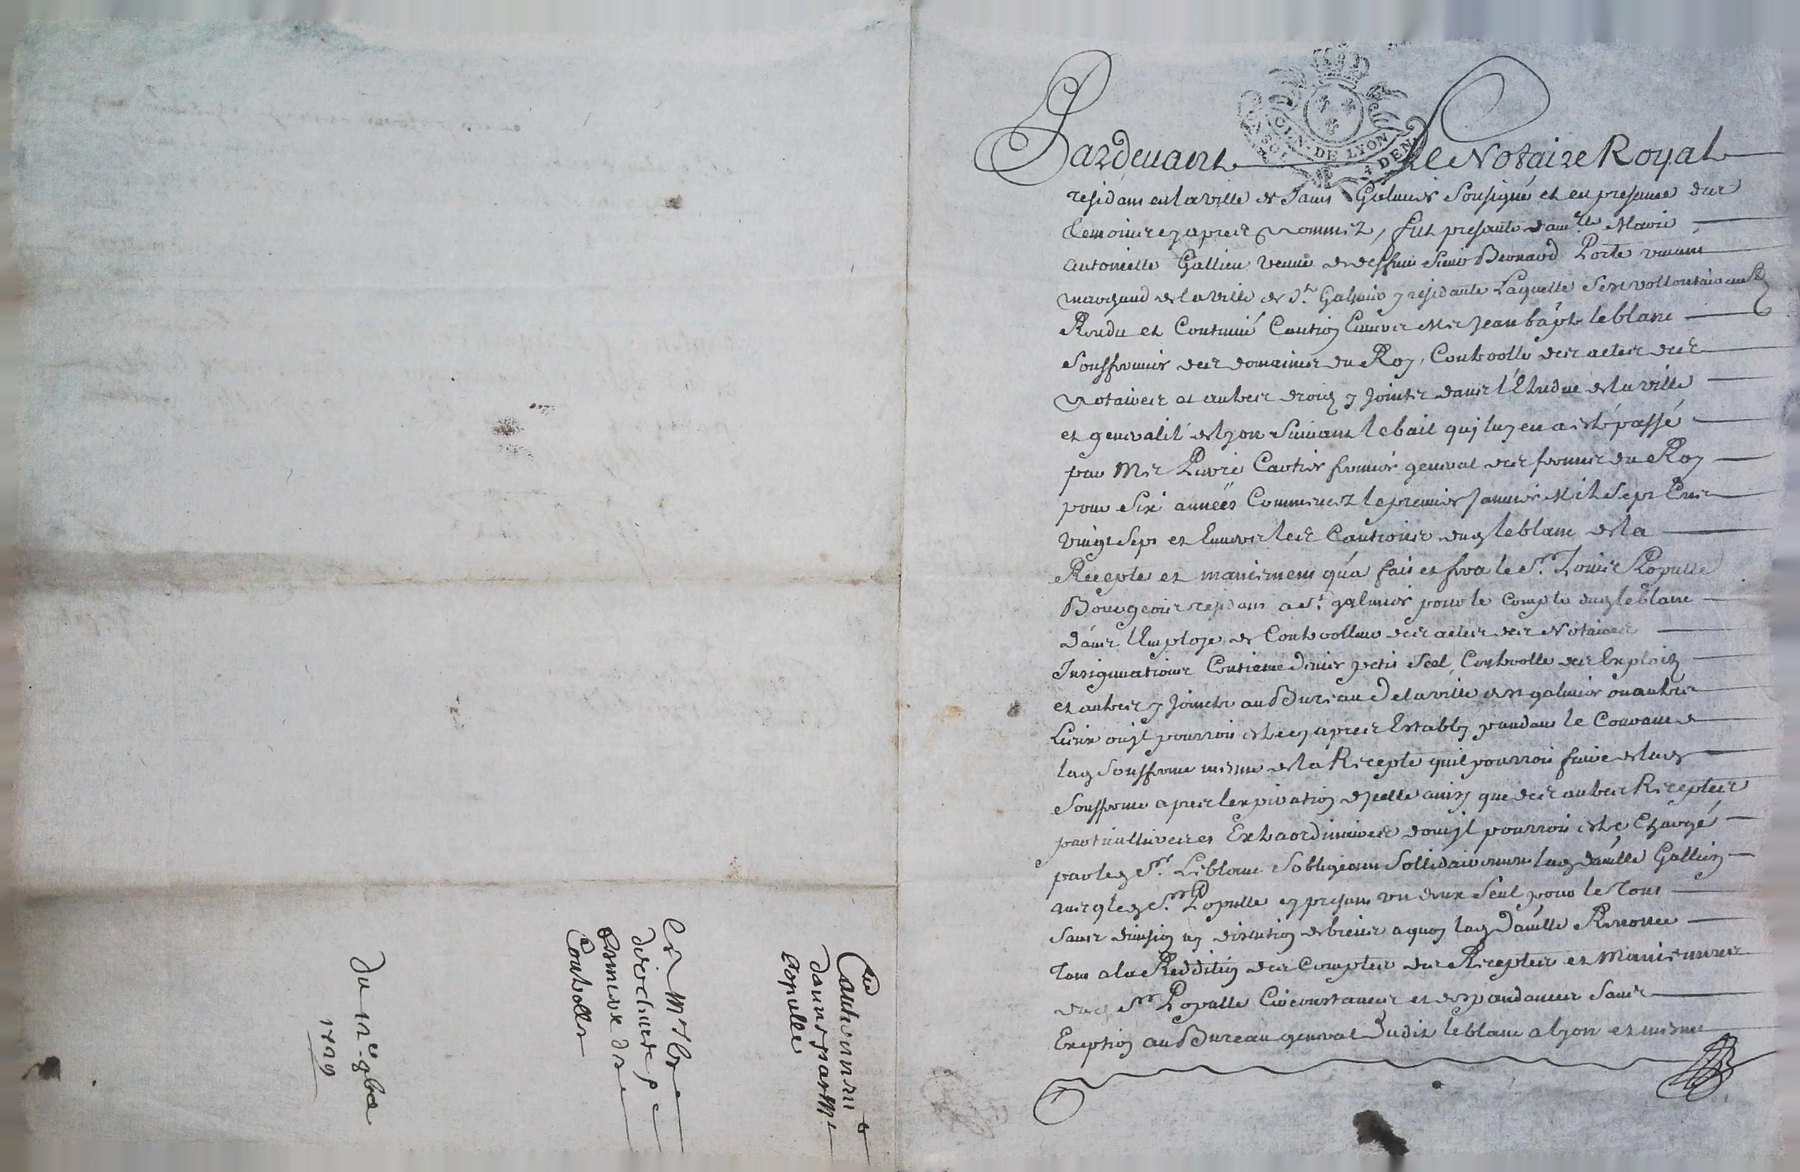 GEN. DE LYON
DEN
Pardeuant le Notaire Royal
residant en la ville de Saint Galmier Soussigné et en presence des
temoins cy apres Nommez, fut presante dam.lle Marie
Antoinette Gallien veuve de deffunt Sieur Bernard Porte vivant
marchand de la ville de St. Galmier y residante Laquelle s'est vollontairement
Rendu et Constitué Caution Envers Mer Jean bapte leblanc
Sousfermier des domaines du Roy, Controolle des actes des
Notaires et autres droits y Joints dans l'Etendue de la ville
et generalité de lyon Suivant le bail quj luy en a esté passé
par Mer Pierre Carlier fermier general des fermes du Roy
pour Six années Commencez le premier Janvier Mil Sept Cens
vingt Sept et Envers les Cautions dudt leblanc de la
Recepte et maniement qu'a fait et fera le Sr. Louis Populle
Bourgeois residant a St. galmier pour le compte dudt leblanc
dans l'Employe de Controolleur des actes des Notaires
Insignuations Centieme denier petit Scel Controolle des Exploits
et autres y Joints au Bureau de la ville de St galmier ou autres
Lieux ou jl pourroit estre cy apres Establly pandant le Courant de
lad Sousferme mesme de la Recepte qu'il pourroit faire de lad
Sousferme apres l'expiration d'jcelle ainsy que des autres Receptes
particullieres et Extraordinaires dont jl pourroit estre Chargé
par led Sr. Leblanc S'obligeant Sollidairement lad dam.lle Gallien
avec led Sr. Populle cy present un d'eux Seul pour le Tout
Sans division ny discution de biens a quoy lad dam.lle Renonce
Tout a la Reddition des Comptes des Receptes et Maniements
dud Sr Populle Circonstances et despandances Sans
Exeption au Bureau general dudit leblanc a lyon et mesme
Cautionnemt
donné par Mr
populle
a Mr
directeur
fermes
Controlle
du 12e xbre
1729